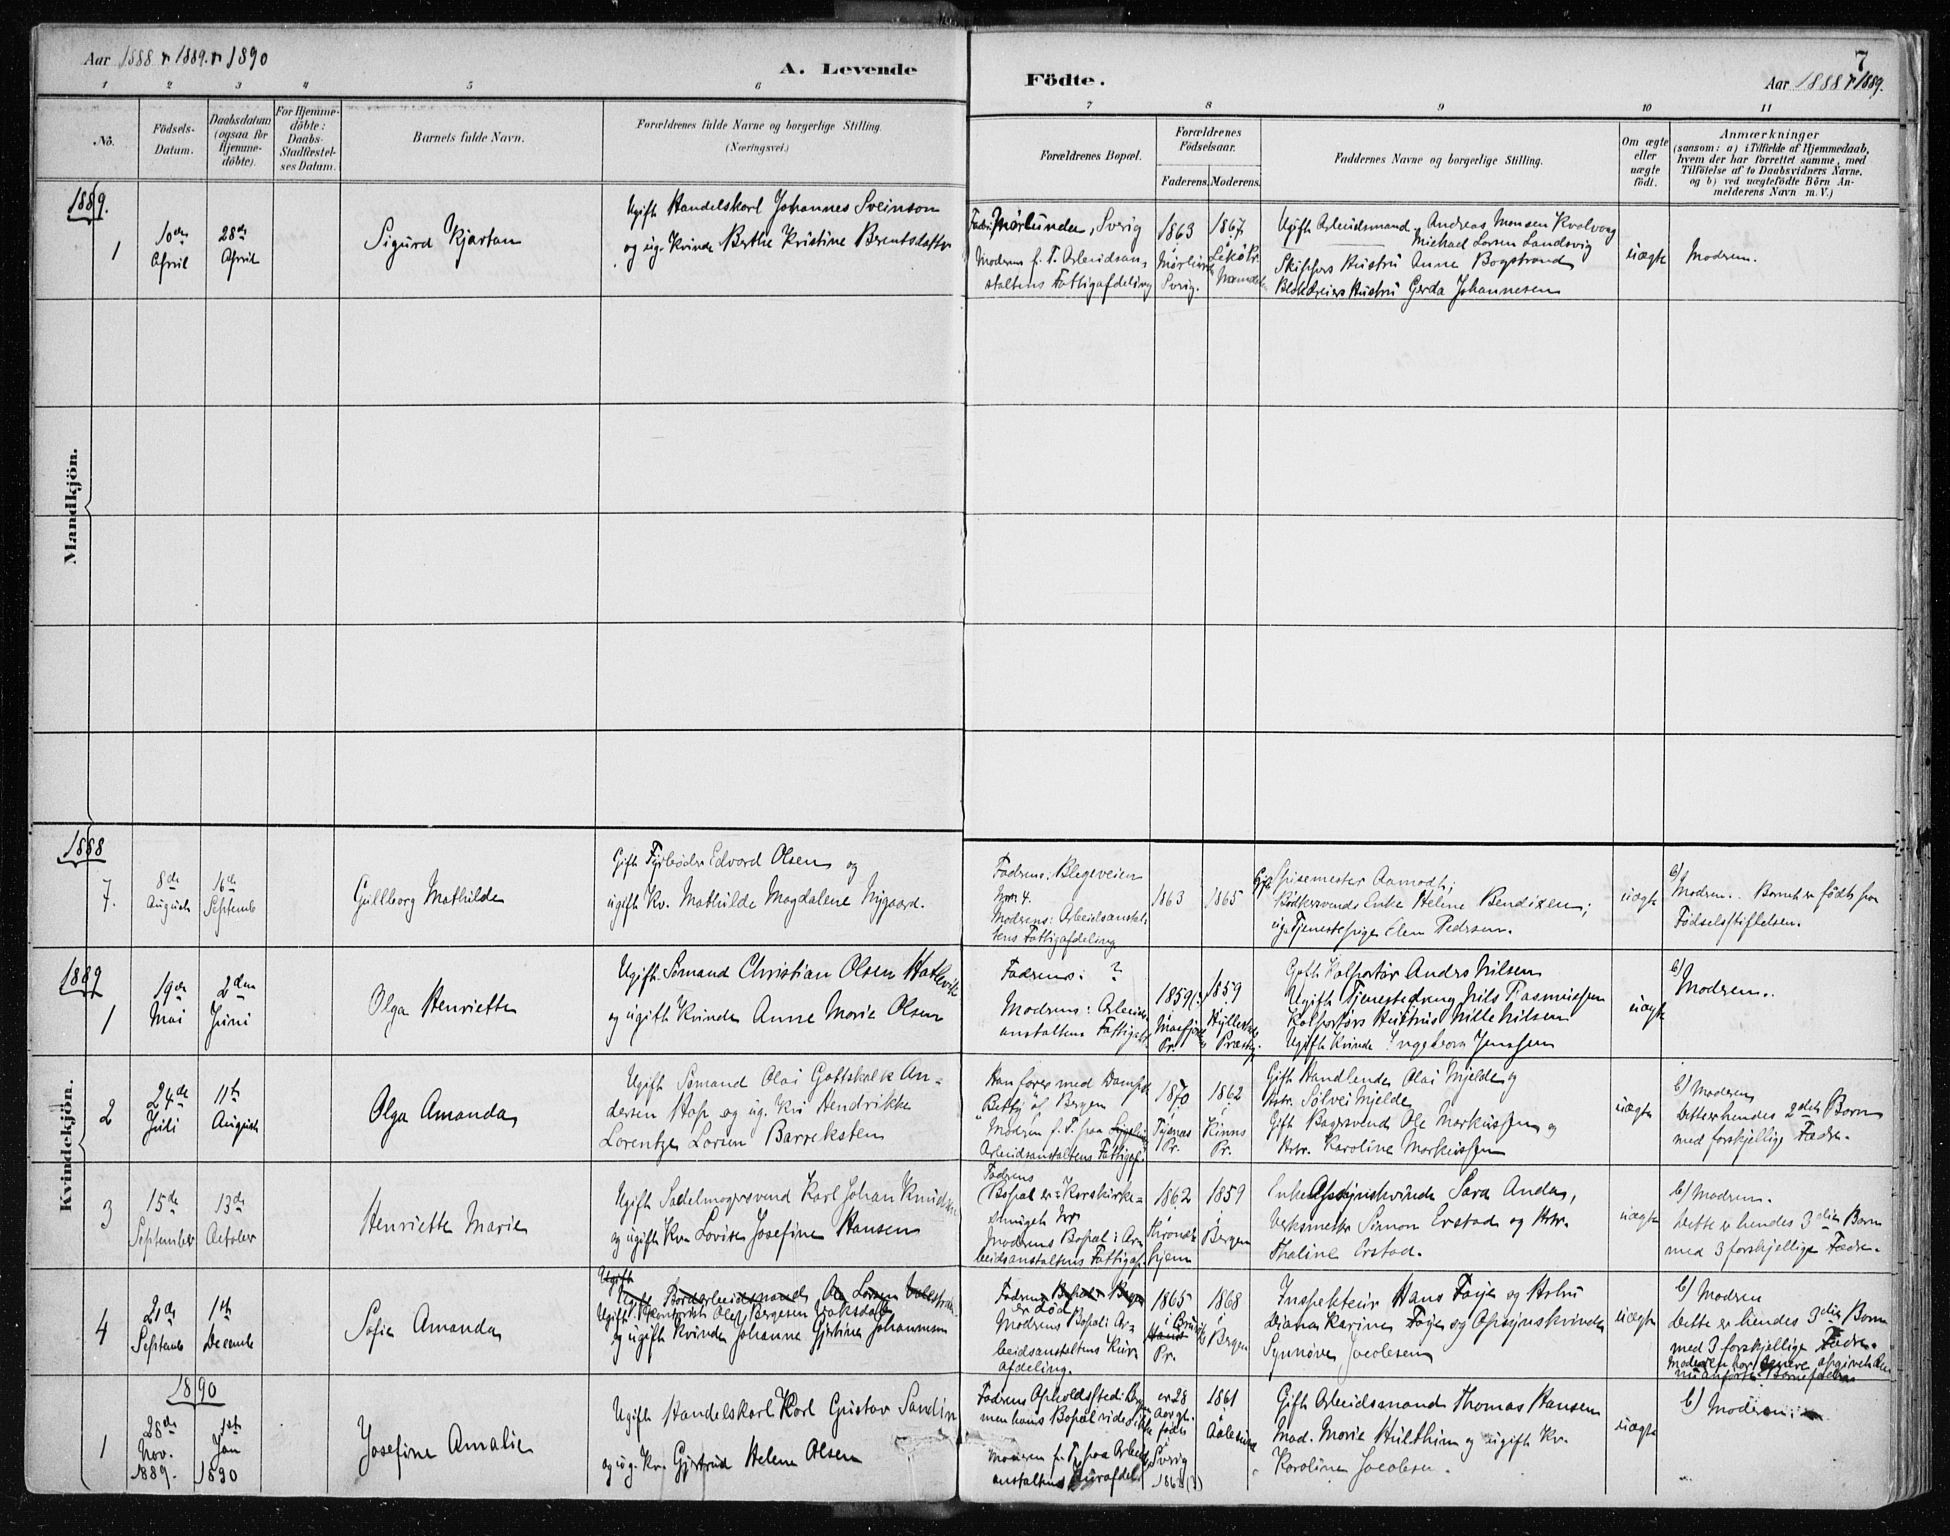 Aar 1888 & 1889. & 1890
A. Levende Födte.
7
Aar 1888 & 1889.
1 2 3 4 5 6 7 8 9 10 11
No.
Födsels-
Datum.
Daabsdatum
(ogsaa for
Hjemme-
döbte).
For Hjemme-
döbte:
Daabs-
Stadfæstel-
ses Datum.
Barnets fulde Navn.
Forældrenes fulde Navne og borgerlige Stilling.
(Næringsvei.)
Forældrenes Bopæl.
Forældrenes
Födselsaar.
Faderens. Moderens.
Faddernes Navne og borgerlige Stilling.
Om ægte
eller
uægte
födt.
Anmærkninger
(saasom: a) i Tilfælde af Hjemmedaab,
hvem der har forrettet samme, med
Tilföielse af to Daabsvidners Navne,
og b) ved uægtefödte Börn An-
melderens Navn m. V.)
Mandkjön.
1889.
1
10de
April
28de
April
Sigurd Kjartan
Ugift Handelskarl Johannes Sveinson
og ug. Kvinde Berthe Kristine Berentsdatter
Mörlunda, Sverig
Moderens f. T. Arbeidsan-
staltens Fattigafdeling
1863
Sverig.
1867
Ugift Arbeidsmand Andreas Monsen Kvalvaag
Michael Larsen Landsvig
Skippers Hustru Anne Bogstrand
Hustru Gerda Johannesen
uægte
Moderen.
Kvindekjön.
1888
7.
8de
August
16de
Septemb
Gullborg Mathilde
Gift Fyrbøder Edvard Olsen og
ugift Kv. Mathilde Magdalene Nygaard.
Fadrens: Blegeveien
Nr. 4.
Modrens: Arbeidsanstal-
tens Fattigafdeling
1863
1865
Spisemester Aamodt;
Bødkersvends Enke Helene Bendixen;
ug. Tjenestepige Elen Pedersen.
uægte
b)
Modren. Barnet er født paa
Fødselsstiftelsen.
1889
1
19de
Mai
2den
Juni
Olga Henriette
Ugift Sømand Christian Olsen Hatlevik
og ugift Kvinde Anne Marie Olsen
Fadrens: ?
Modrens: Arbeids-
anstaltens Fattigafd.
1859
Pr.
1859
Hyllestad
Præstg.
Gift Kolportør Anders Nilsen
Ugift Tjenestedreng Nils Rasmussen
Kolportørs Hustru Nille Nilsen
Ugift Kvinde Ingeborg Jenssen
uægte
b)
Modren.
2
24de
Juli
11te
August
Olga Amanda
Ugift Sømand Olai Gottskalk An-
dersen Hop og ug. Kv. Hendrikke
Lorentze Larsen Barreksten
Han farer med Dampsk.
"Betty" af Bergen
Modren f. T. paa
Arbeidsanstaltens Fattigafd.
1870
Pr.
1862
Kinns
Pr.
Gift Handlende Olai Mjelde og
Hstr. Sølvei Mjelde
Gift Bagersvend Ole Markussen og
Hstr. Karoline Markussen
uægte
b) Modren
Dette er hendes 2det Barn
med forskjellige Fædre.
3
15de
September
13de
October
Henriette Marie
Ugift Sadelmagersvend Karl Johan Knudsen
og ugift Kv. Lovise Josefine Hansen
Fadrens
Bopæl er: Korskirke-
smuget Nr
Modrens Bopæl: Ar-
beidsanstaltens Fattigaf.
1862
Thrond-
hjem
1859
Bergen
Enke Opsynskvinde Sara Anda,
Verksmester Simon Erstad og Hstr.
Thaline Erstad.
uægte
b) Modren.
Dette er hendes 3die Barn
med 3 forskjellige Fædre.
4
21de
Septemb
1ste
Decemb
Sofie Amanda
Ugift
og ugift Kvinde Johanne Gjertine Johannesen
Fadren
er død
Modrens Bopæl: Ar-
beidsanstaltens Kur-
afdeling.
1865
Pr.
1868
Bergen
Inspekteur Hans Føyn og Hstru
Diana Karine Føyn og Opsynskvinde
Synnøve Jacobsen
uægte
b) Modren
Dette er hendes 3die Barn
med 3 forskjellige Fædre.
1890
1
28de
Nov.
1889.
1ste
Jan
1890
Josefine Amalie
Ugift Handelskarl Karl Gustav Sandin
og ug. Kv. Gjertrud Helene Olsen
Fadrens Opholdssted: Bergen
men hans Bopæl vides ikke
Modren f. T. paa Arbeids-
anstaltens Kurafdel.
er 28
Aar gl.
født i
Sverig
1861
Aalesund
Gift Arbeidsmand Thomas Hansen
Mad. Marie Hulthin og ugift Kv.
Karoline Jacobsen.
uægte
b) Modren.